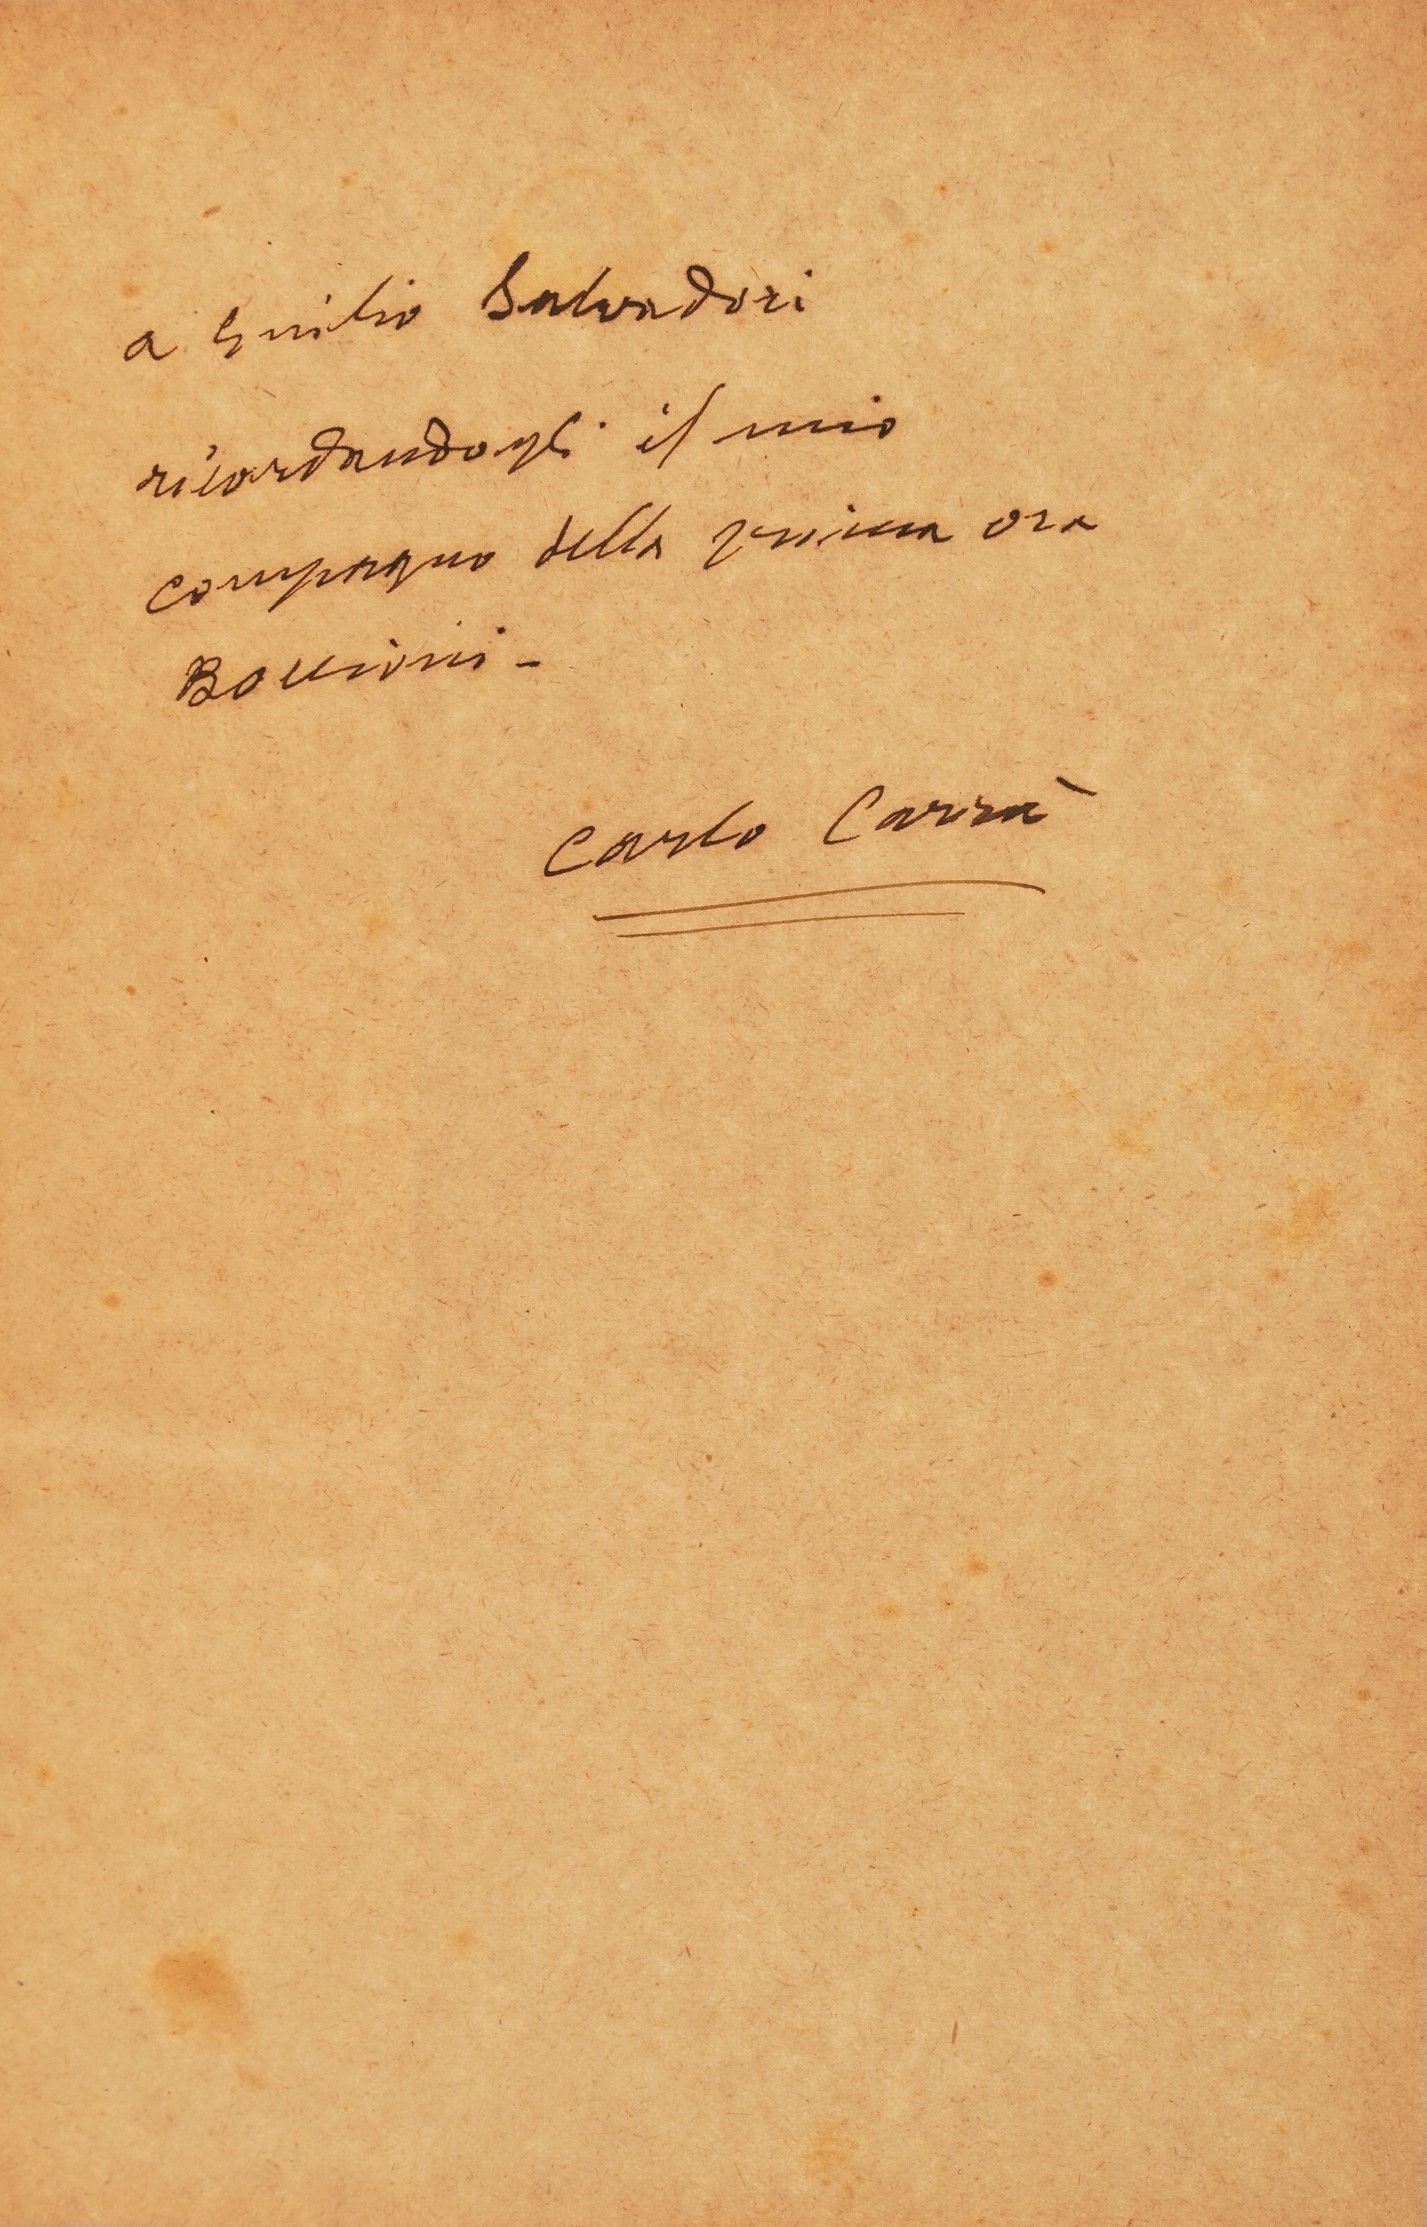 a Emilio Salvadori
ricordandogli il mio
compagno della prima ora
Boccioni -
Carlo Carrà